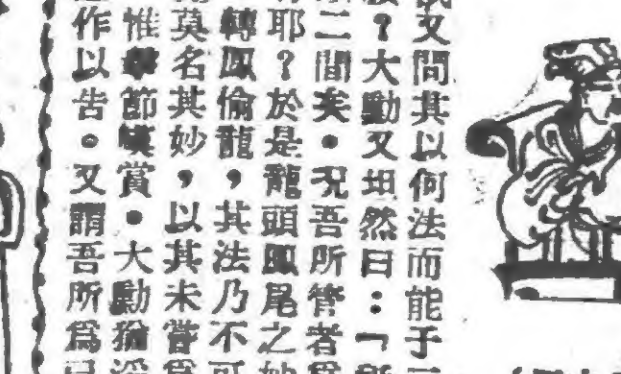 又問其以何法而能于
？大勳又坦然曰：「所
二間矣。况吾所管者爲
耶？於是龍頭鳳尾之妙
轉鳳偷龍，其法乃不可
莫名其妙，以其未嘗爲
惟擊節嘆賞。大勳猶
作以告。又謂吾所爲